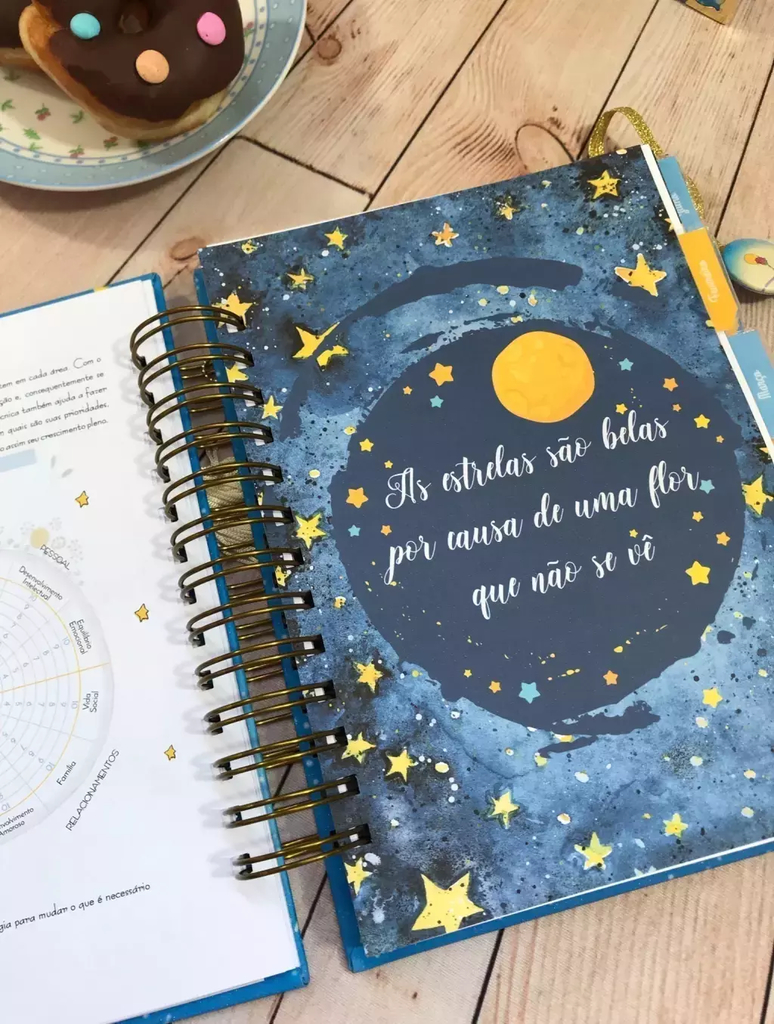 tem em cada área. Com o
ção e, consequentemente se
écnica também ajuda a fazer
quais são suas prioridades,
assim seu crescimento pleno.
PESSOAL
Desenvolvimento
Intelectual
Equilíbrio
Emocional
Vida
Social
Família
RELACIONAMENTOS
Amoroso
gia para mudar o que é necessário
As estrelas são belas
por causa de uma flor
que não se vê
Março